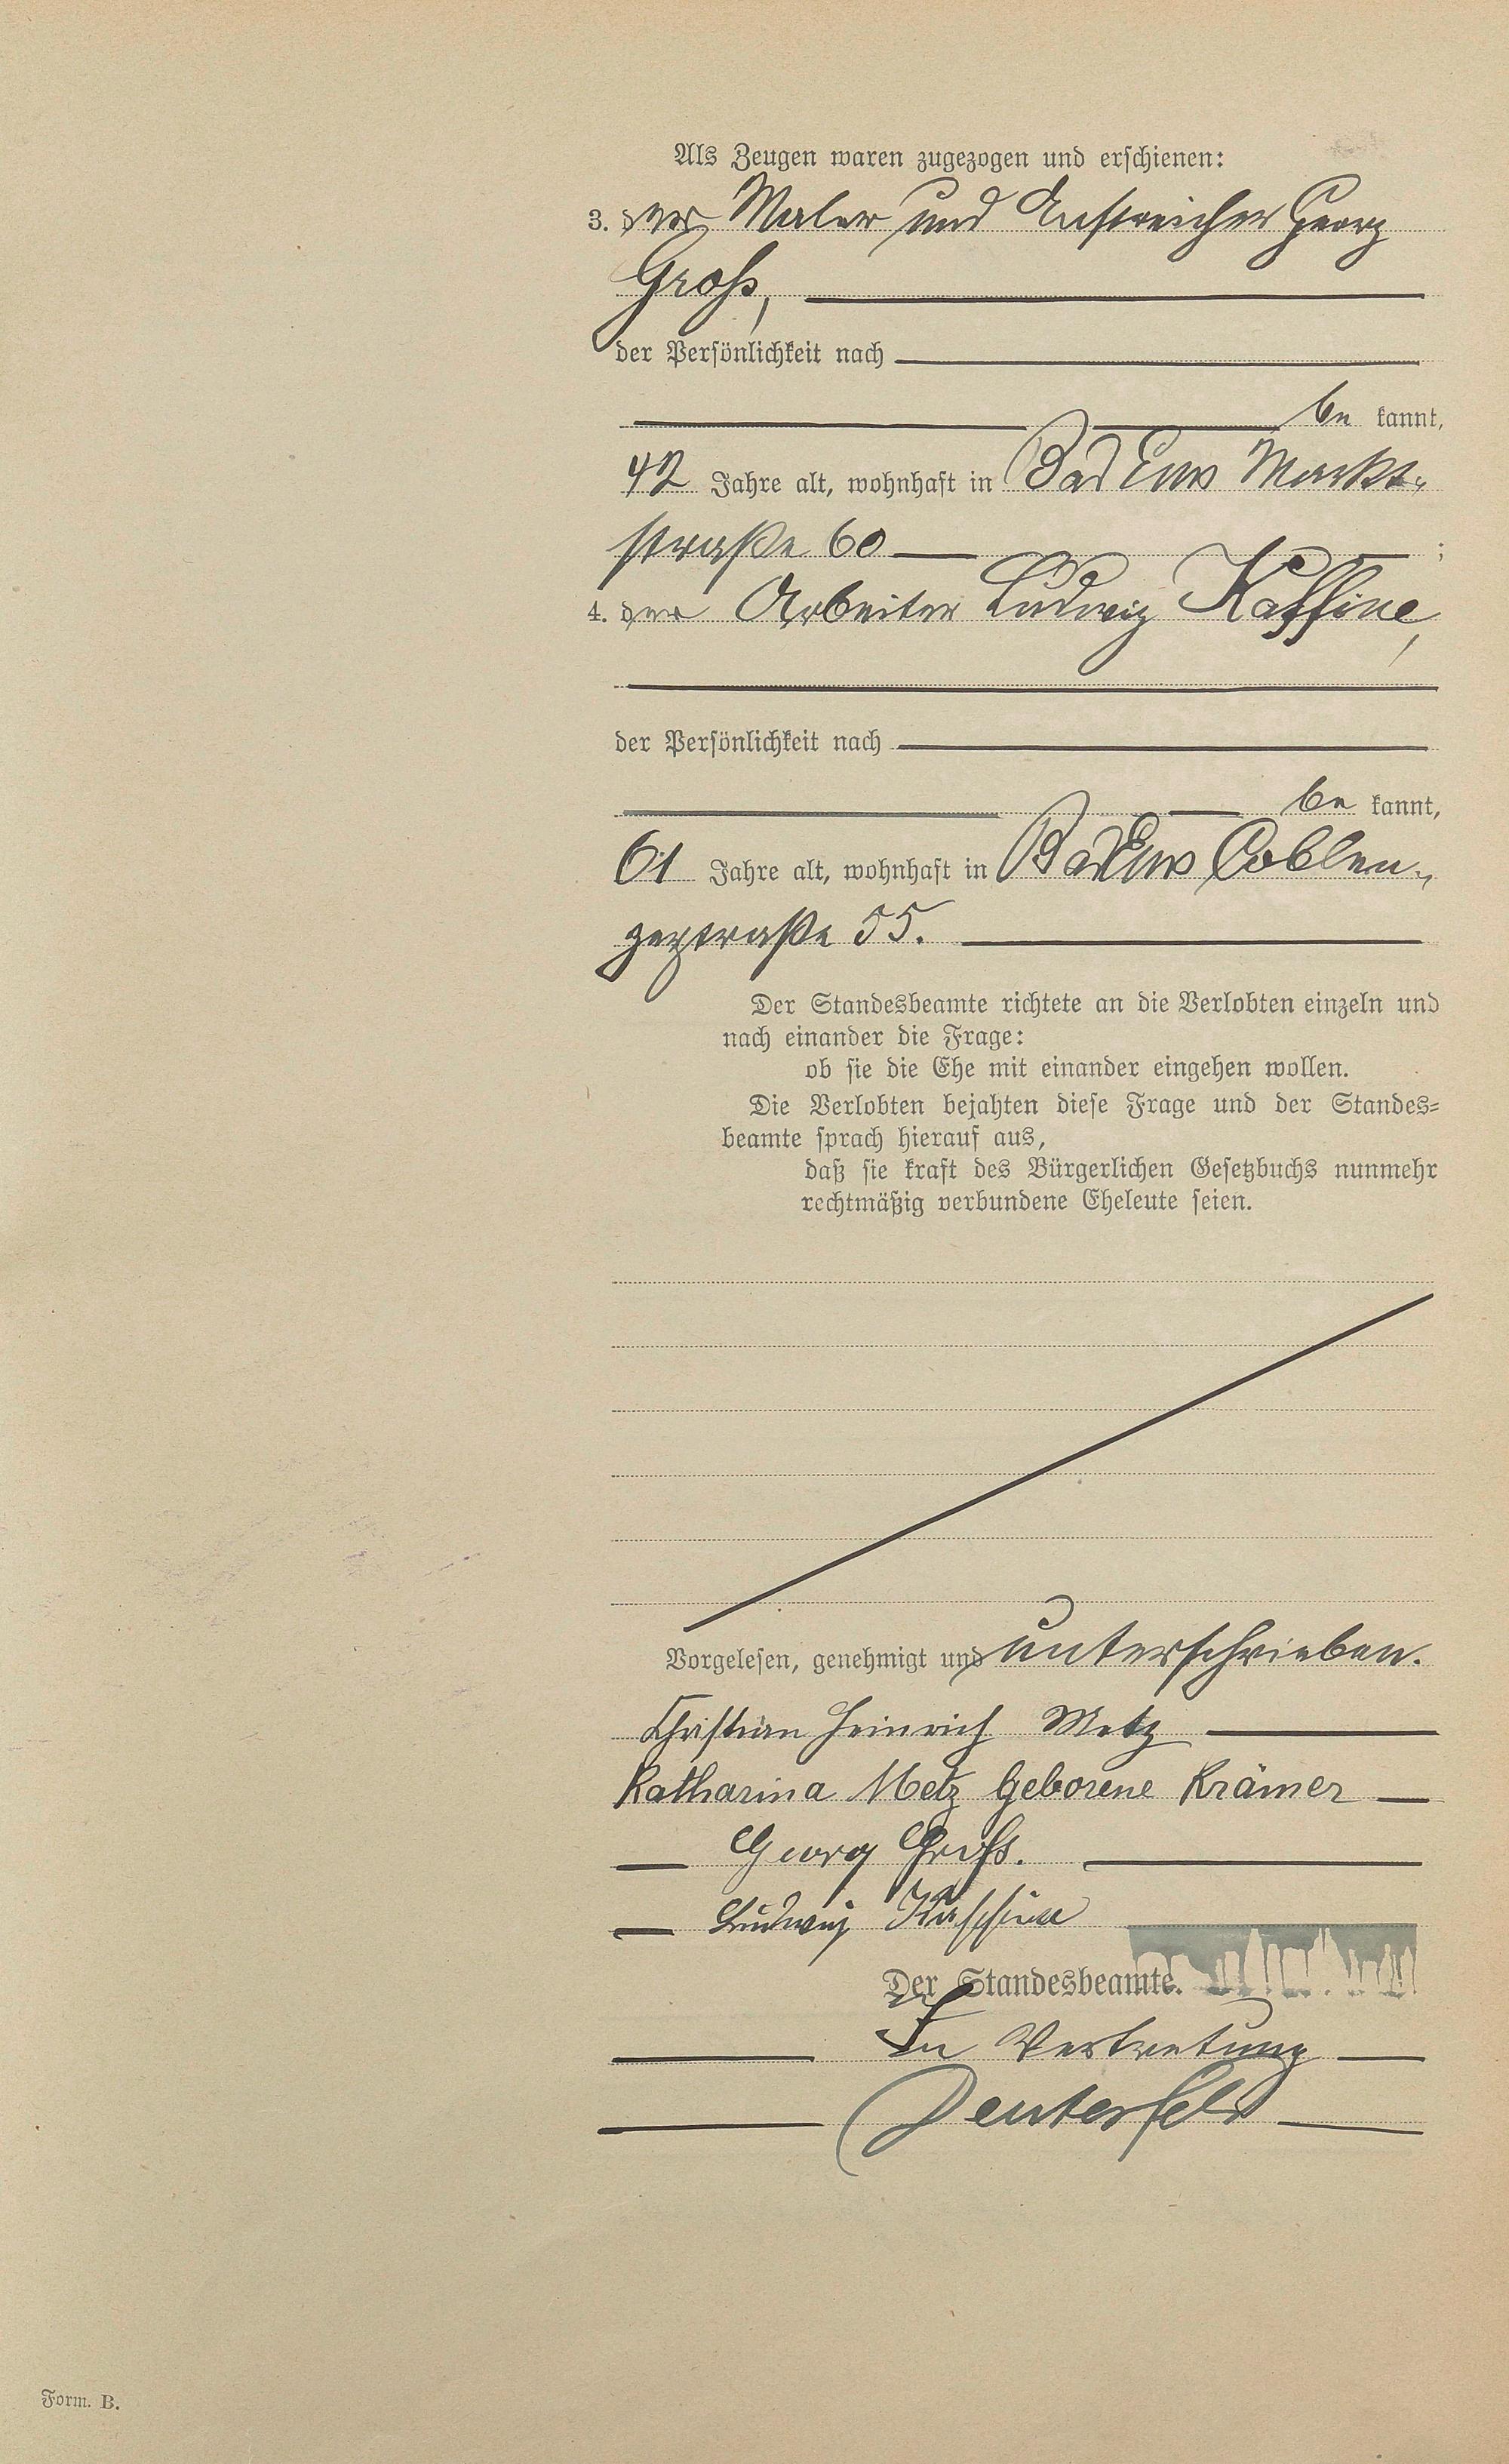 Als Zeugen waren zugezogen und erschienen:
3. der Maler und Anstreicher Georg
Groß,
der Persönlichkeit nach
be kannt,
42 Jahre alt, wohnhaft in Bad Ems Markt-
straße 60 ;
4. der Arbeiter Ludwig Kaffine,
der Persönlichkeit nach
be kannt,
61 Jahre alt, wohnhaft in Bad Ems Coblen-
zerstraße 55.
Der Standesbeamte richtete an die Verlobten einzeln und
nach einander die Frage:
ob sie die Ehe mit einander eingehen wollen.
Die Verlobten bejahten diese Frage und der Standes-
beamte sprach hierauf aus,
daß sie kraft des Bürgerlichen Gesetzbuchs nunmehr
rechtmäßig verbundene Eheleute seien.
Vorgelesen, genehmigt und unterschrieben.
Christian Heinrich Metz
Katharina Metz Geborene Krämer
Georg Groß.
Ludwig Kaffine
Der Standesbeamte.
In Vertretung
Form. B.